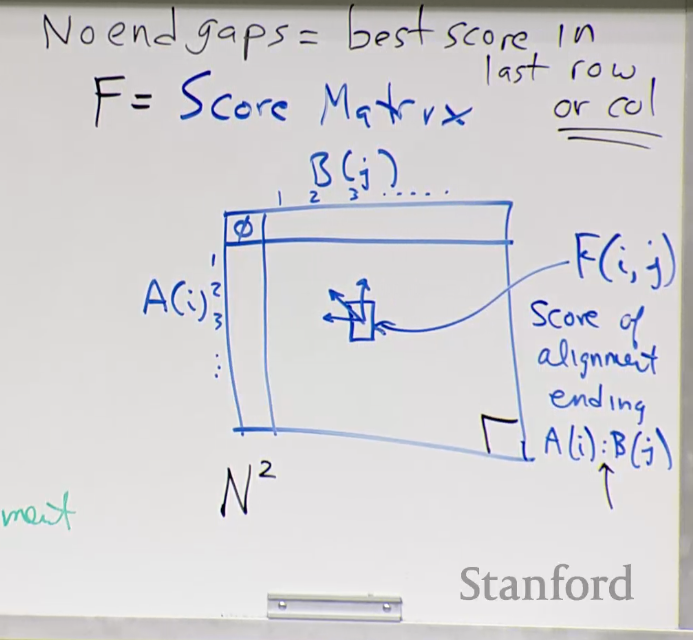 No end gaps = best score in
last row
or col
F = Score Matrix
B(j)
1 2 3 ......
Ø
1
A(i) 2
3
⋮
F(i,j)
Score of
alignment
ending
A(i):B(j)
↑
N²
Stanford